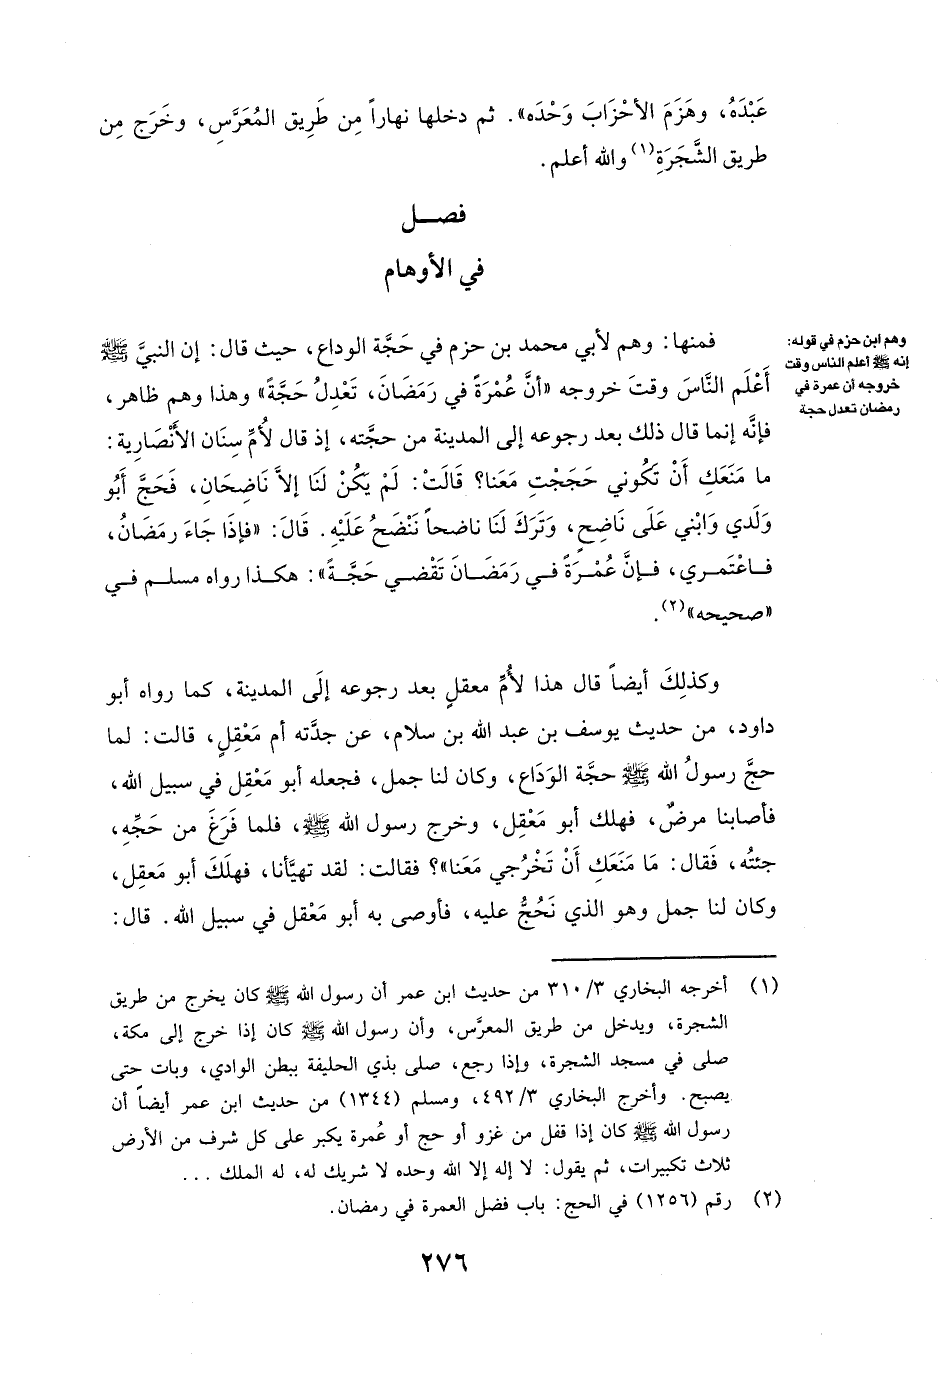 عَبْدَهُ، وهَزَمَ الأحْزَابَ وَحْدَه». ثم دخلها نهاراً مِن طَرِيق المُعَرَّسِ، وخَرَج مِن
طريق الشَّجَرَةِ(١) والله أعلم.
فصـــل
في الأوهام
فمنها: وهم لأبي محمد بن حزم في حَجَّة الوداع، حيث قال: إن النبيَّ ﷺ
أَعْلَم النَّاسَ وقتَ خروجه «أنَّ عُمْرَةً في رَمَضَانَ، تَعْدِلُ حَجَّةً» وهذا وهم ظاهر،
فإنَّه إنما قال ذلك بعد رجوعه إلى المدينة من حجَّته، إذ قال لأُمِّ سِنَان الأَنْصَارِية:
ما مَنَعَكِ أَنْ تَكُوني حَجَجْتِ مَعَنا؟ قَالَتْ: لَمْ يَكُنْ لَنَا إلاَّ نَاضِحَانِ، فَحَجَّ أَبُو
وَلَدي وَابْني عَلَى نَاضِحٍ، وَتَرَكَ لَنَا ناضحاً نَنْضَحُ عَلَيْهِ. قَالَ: «فإذَا جَاءَ رمَضَانُ،
فـاعْتَمـري، فـإنَّ عُمْـرَةً فـي رَمَضَـانَ تَقْضـي حَجَّـةً»: هكـذا رواه مسلـم فـي
«صحيحه»(٢).
وهم ابن حزم في قوله:
إنه ﷺ أعلم الناس وقت
خروجه أن عمرة في
رمضان تعدل حجة
وكذلِكَ أيضاً قال هذا لأُمِّ معقلٍ بعد رجوعه إلَى المدينة، كما رواه أبو
داود، من حديث يوسف بن عبد الله بن سلام، عن جدَّته أم مَعْقِلٍ، قالت: لما
حجَّ رسولُ الله ﷺ حجَّة الوَدَاع، وكان لنا جمل، فجعله أبو مَعْقِل في سبيل الله،
فأصابنا مرضٌ، فهلك أبو مَعْقِل، وخرج رسول الله ﷺ، فلما فَرَغَ من حَجِّهِ،
جئتُه، فَقال: مَا مَنَعَكِ أَنْ تَخْرُجي مَعَنا»؟ فقالت: لقد تهيَّأنا، فهلَكَ أبو مَعقِل،
وكان لنا جمل وهو الذي نَحُجُّ عليه، فأوصى به أبو مَعْقل في سبيل الله. قال:
(١) أخرجه البخاري ٣١٠/٣ من حديث ابن عمر أن رسول الله ﷺ كان يخرج من طريق
الشجرة، ويدخل من طريق المعرَّس، وأن رسول الله ﷺ كان إذا خرج إلى مكة،
صلى في مسجد الشجرة، وإذا رجع، صلى بذي الحليفة ببطن الوادي، وبات حتى
يصبح. وأخرج البخاري ٤٩٢/٣، ومسلم (١٣٤٤) من حديث ابن عمر أيضاً أن
رسول الله ﷺ كان إذا قفل من غزو أو حج أو عُمرة يكبر على كل شرف من الأرض
ثلاث تكبيرات، ثم يقول: لا إله إلا الله وحده لا شريك له، له الملك ...
(٢) رقم (١٢٥٦) في الحج: باب فضل العمرة في رمضان.
٢٧٦